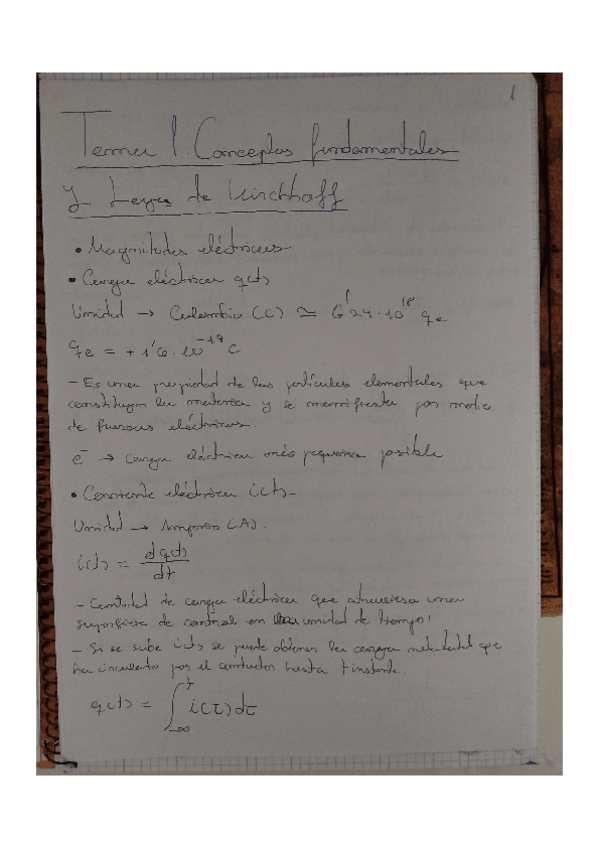 1
Tema 1. Conceptos fundamentales
y Leyes de Kirchhoff
• Magnitudes eléctricas
• Carga eléctrica q(t)
Unidad → Culombio (C) ≃ 6'24·10^18 qe
qe = +1'6·10^-19 C
- Es una propiedad de las partículas elementales que
constituyen la materia y se manifiesta por medio
de fuerzas eléctricas
e^- → carga eléctrica más pequeña posible
• Corriente eléctrica i(t)
Unidad → Amperio (A).
i(t) = dq(t)/dt
- Cantidad de carga eléctrica que atraviesa una
superficie de control en unidad de tiempo!
- Si se sabe i(t) se puede obtener la carga neta total que
ha circulado por el conductor hasta t instante.
q(t) = ∫_{-∞}^{t} i(τ)dτ